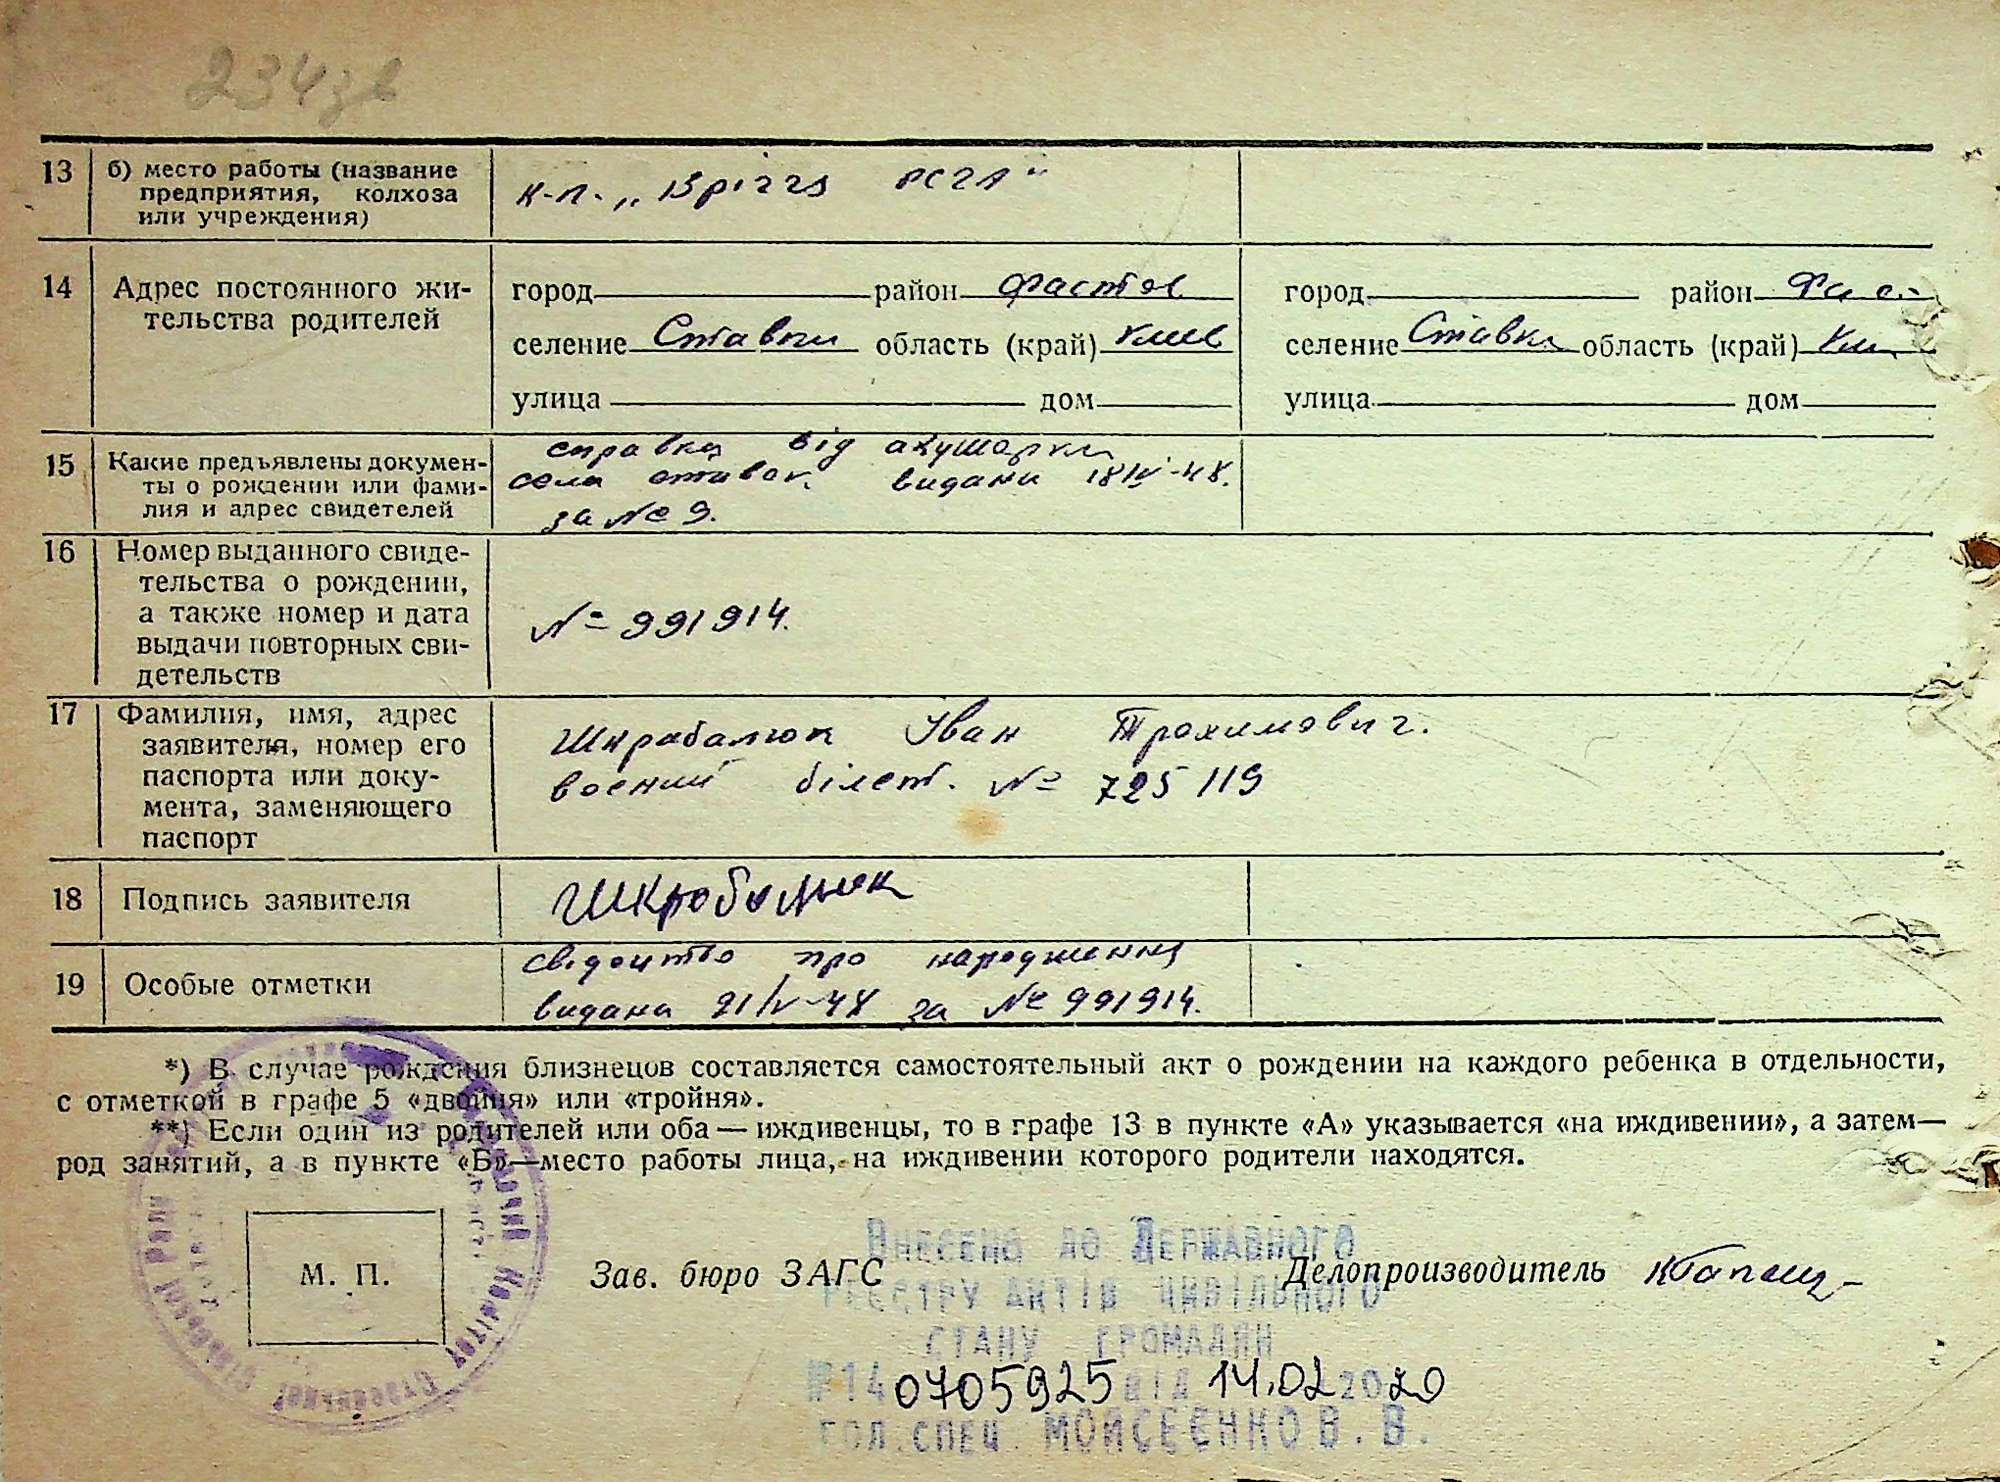 234зв
13 б) место работы (название
предприятия, колхоза
или учреждения)
к-п. „
14 Адрес постоянного жи-
тельства родителей
город район Фастов город район Фас.
селение Ставки область (край) Киев селение Ставки область (край) Ки
улица дом улица дом
15 Какие предъявлены докумен-
ты о рождении или фами-
лия и адрес свидетелей
справка від акушорки
села ставок. видана 18 IV-48.
за № 9.
16 Номер выданного свиде-
тельства о рождении,
а также номер и дата
выдачи повторных сви-
детельств
№ 991914.
17 Фамилия, имя, адрес
заявителя, номер его
паспорта или доку-
мента, заменяющего
паспорт
Шкрабалюк Іван Трохимович.
воений білет. № 725119
18 Подпись заявителя Шкробалюк
19 Особые отметки
свідоцтво про народження
видана 21/IV-48 за № 991914.
*) В случае рождения близнецов составляется самостоятельный акт о рождении на каждого ребенка в отдельности,
с отметкой в графе 5 «двойня» или «тройня».
**) Если один из родителей или оба — иждивенцы, то в графе 13 в пункте «А» указывается «на иждивении», а затем—
род занятий, а в пункте «Б»—место работы лица, на иждивении которого родители находятся.
М. П.
Зав. бюро ЗАГС Делопроизводитель
Внесено до Державного
реєстру актів цивільного
стану громадян
№ 14 0705925 від 14.02 2020
гол. спец. Мойсеєнко В. В.